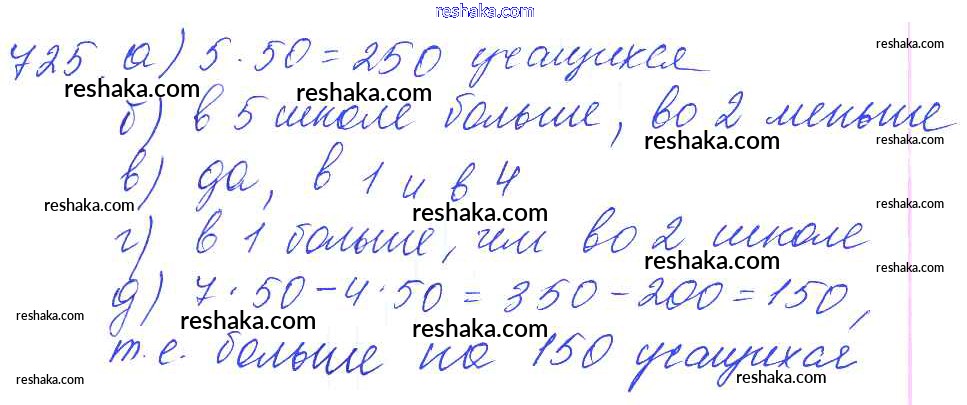 reshaka.com
725. а) 5·50=250 учащихся
reshaka.com
reshaka.com
reshaka.com
б) в 5 школе больше, во 2 меньше
reshaka.com
reshaka.com
в) да, в 1 и в 4
reshaka.com
reshaka.com
reshaka.com
г) в 1 больше, чем во 2 школе
reshaka.com
reshaka.com
д) 7·50-4·50=350-200=150,
reshaka.com
reshaka.com
reshaka.com
reshaka.com
т.е. больше на 150 учащихся
reshaka.com
reshaka.com